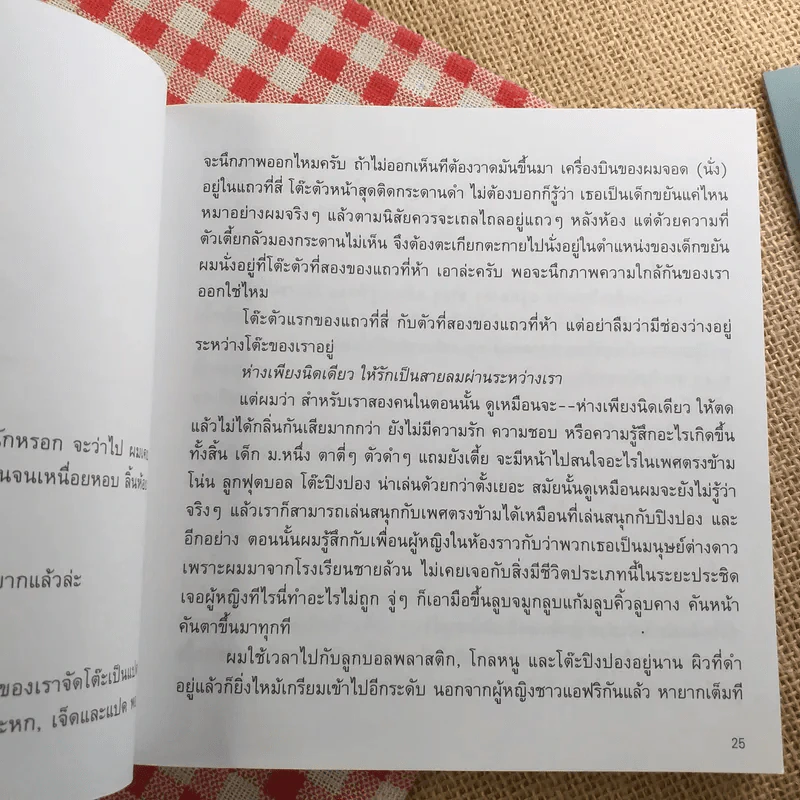 กหรอก จะว่าไป ผม
นจนเหนื่อยหอบ
ยากแล้วล่ะ
ของเราจัดโต๊ะเป็น
ะหก, เจ็ดและแปด
จะนึกภาพออกไหมครับ ถ้าไม่ออกเห็นทีต้องวาดมันขึ้นมา เครื่องบินของผมจอด (นั่ง)
อยู่ในแถวที่สี่ โต๊ะตัวหน้าสุดติดกระดานดำ ไม่ต้องบอกก็รู้ว่า เธอเป็นเด็กขยันแค่ไหน
หมาอย่างผมจริงๆ แล้วตามนิสัยควรจะเถลไถลอยู่แถวๆ หลังห้อง แต่ด้วยความที่
ตัวเตี้ยกลัวมองกระดานไม่เห็น จึงต้องตะเกียกตะกายไปนั่งอยู่ในตำแหน่งของเด็กขยัน
ผมนั่งอยู่ที่โต๊ะตัวที่สองของแถวที่ห้า เอาล่ะครับ พอจะนึกภาพความใกล้กันของเรา
ออกใช่ไหม
โต๊ะตัวแรกของแถวที่สี่ กับตัวที่สองของแถวที่ห้า แต่อย่าลืมว่ามีช่องว่างอยู่
ระหว่างโต๊ะของเราอยู่
ห่างเพียงนิดเดียว ให้รักเป็นสายลมผ่านระหว่างเรา
แต่ผมว่า สำหรับเราสองคนในตอนนั้น ดูเหมือนจะ--ห่างเพียงนิดเดียว ให้ตด
แล้วไม่ได้กลิ่นกันเสียมากกว่า ยังไม่มีความรัก ความชอบ หรือความรู้สึกอะไรเกิดขึ้น
ทั้งสิ้น เด็ก ม.หนึ่ง ตาตี่ๆ ตัวดำๆ แถมยังเตี้ย จะมีหน้าไปสนใจอะไรในเพศตรงข้าม
โน่น ลูกฟุตบอล โต๊ะปิงปอง น่าเล่นด้วยกว่าตั้งเยอะ สมัยนั้นดูเหมือนผมจะยังไม่รู้ว่า
จริงๆ แล้วเราก็สามารถเล่นสนุกกับเพศตรงข้ามได้เหมือนที่เล่นสนุกกับปิงปอง และ
อีกอย่าง ตอนนั้นผมรู้สึกกับเพื่อนผู้หญิงในห้องราวกับว่าพวกเธอเป็นมนุษย์ต่างดาว
เพราะผมมาจากโรงเรียนชายล้วน ไม่เคยเจอกับสิ่งมีชีวิตประเภทนี้ในระยะประชิด
เจอผู้หญิงทีไรนี่ทำอะไรไม่ถูก จู่ๆ ก็เอามือขึ้นลูบจมูกลูบแก้มลูบคิ้วลูบคาง คันหน้า
คันตาขึ้นมาทุกที
ผมใช้เวลาไปกับลูกบอลพลาสติก, โกลหนู และโต๊ะปิงปองอยู่นาน ผิวที่ดำ
อยู่แล้วก็ยิ่งไหม้เกรียมเข้าไปอีกระดับ นอกจากผู้หญิงชาวแอฟริกันแล้ว หายากเต็มที
25